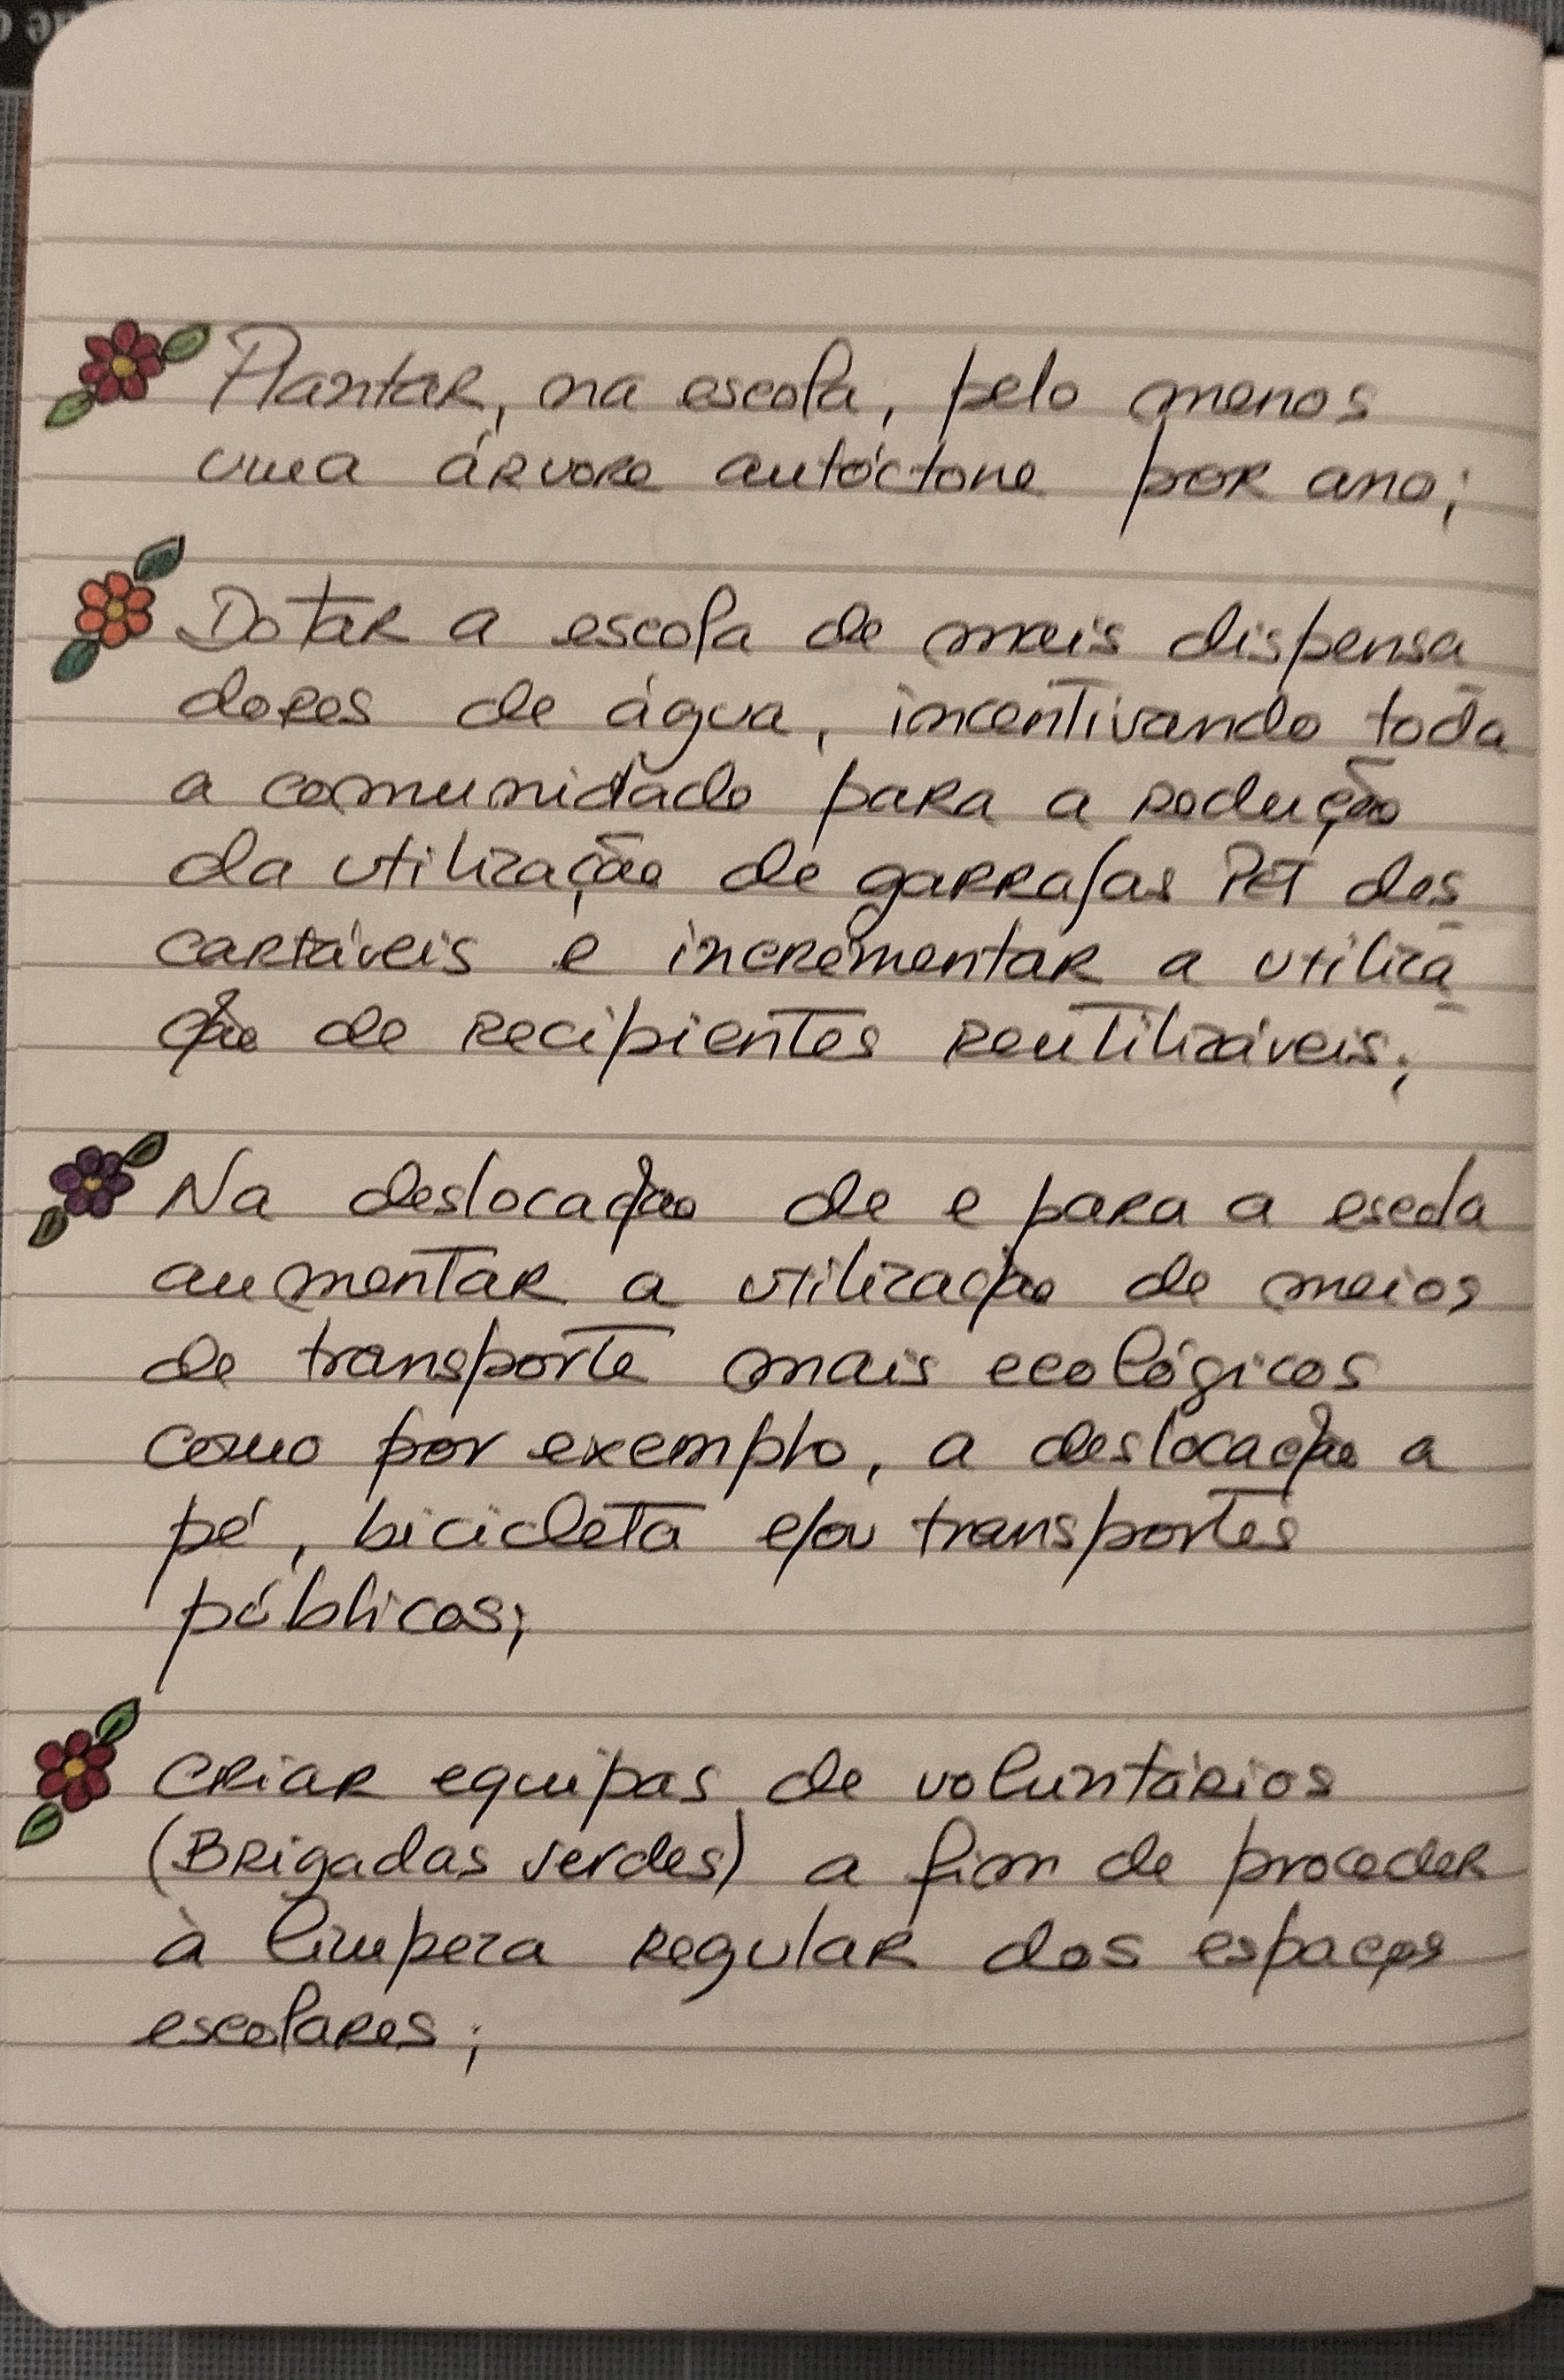 Plantar, na escola, pelo menos
uma árvore autóctone por ano;
Dotar a escola de mais dispensa
dores de água, incentivando toda
a comunidade para a redução
da utilização de garrafas PET des
cartáveis e incrementar a utiliza
ção de recipientes reutilizáveis;
Na deslocação de e para a escola
aumentar a utilização de meios
de transporte mais ecológicos
como por exemplo, a deslocação a
pé, bicicleta e/ou transportes
públicos;
Criar equipas de voluntários
(Brigadas verdes) a fim de proceder
à limpeza regular dos espaços
escolares;